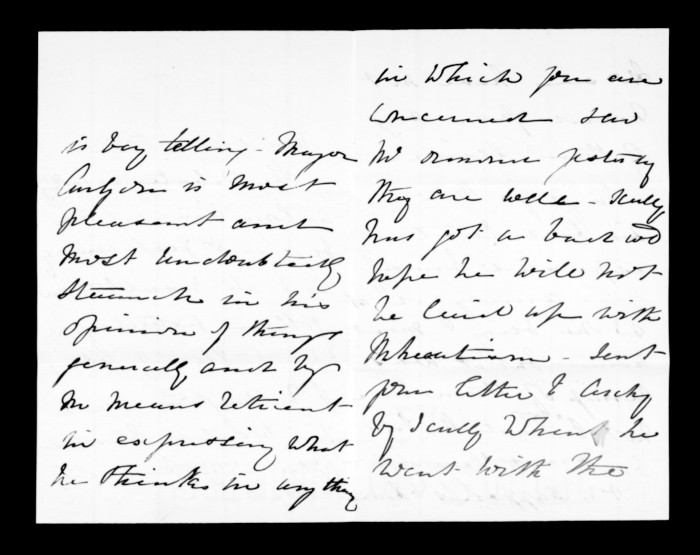 is very telling - Major
is most
pleasant and
most undoubtedly
staunch in his
opinion of things
generally and by
no means reticent
in expressing what
he thinks in anything
in which you are
concerned saw
Mr Ormond yesterday
they are well - Scully
has got a bad
hope he will not
be laid up with
Rheumatism - Sent
your letter to
by Scully when he
went with the